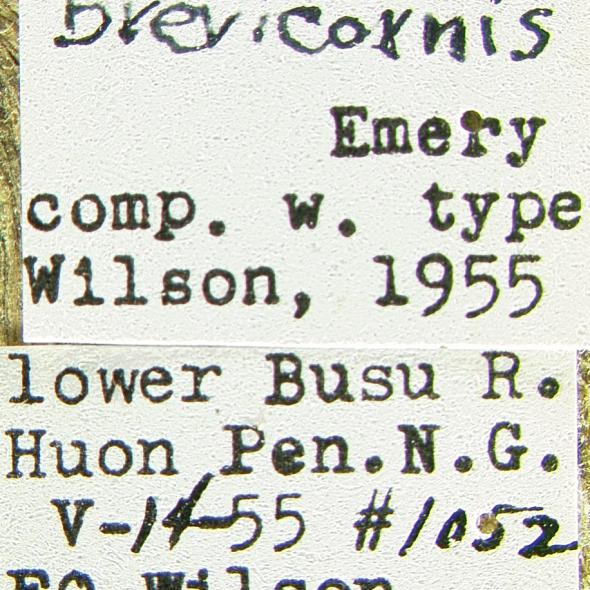 brevicornis
Emery
comp. w. type
Wilson, 1955
lower Busu R.
Huon Pen.N.G.
V-14-55 #1052
EO Wilson